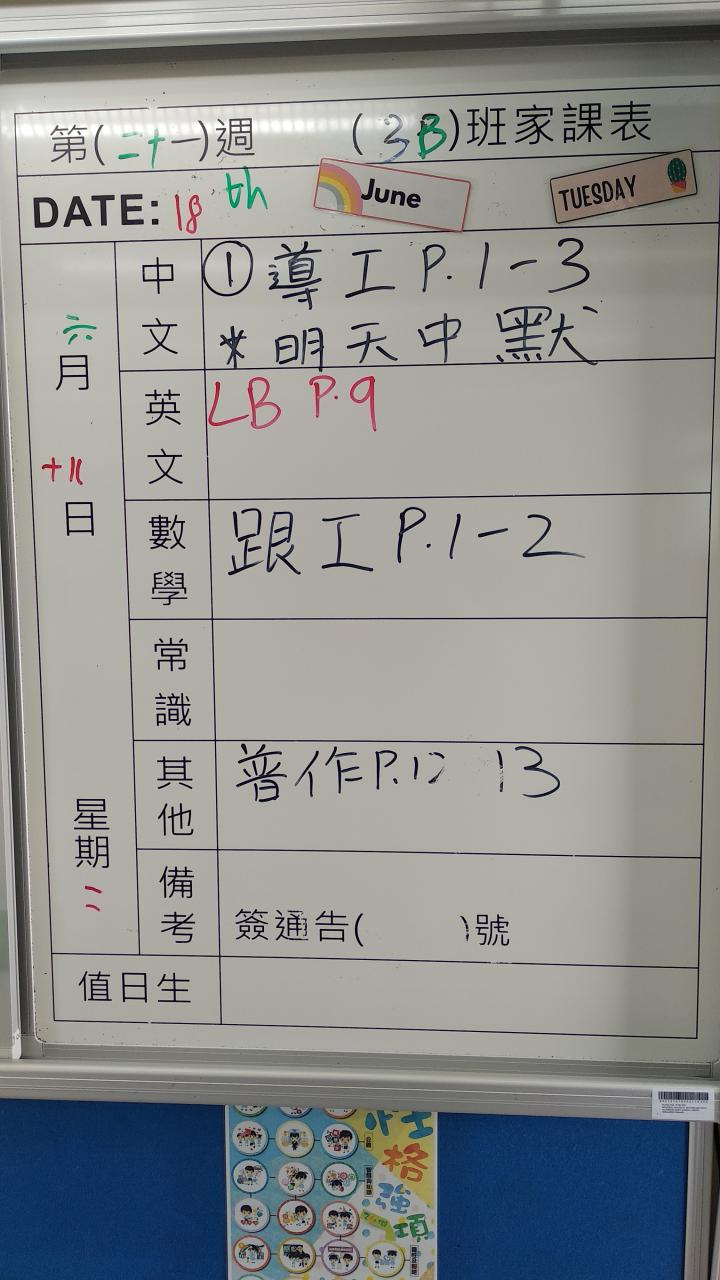 第(二十一)週 (3B)班家課表
DATE: 18th June TUESDAY
六月十八日星期二
中文 ①導工P.1-3
*明天中默
英文 LB P.9
數學 跟工P.1-2
常識
其他 普作P.12 13
備考 簽通告( )號
值日生
性格強項